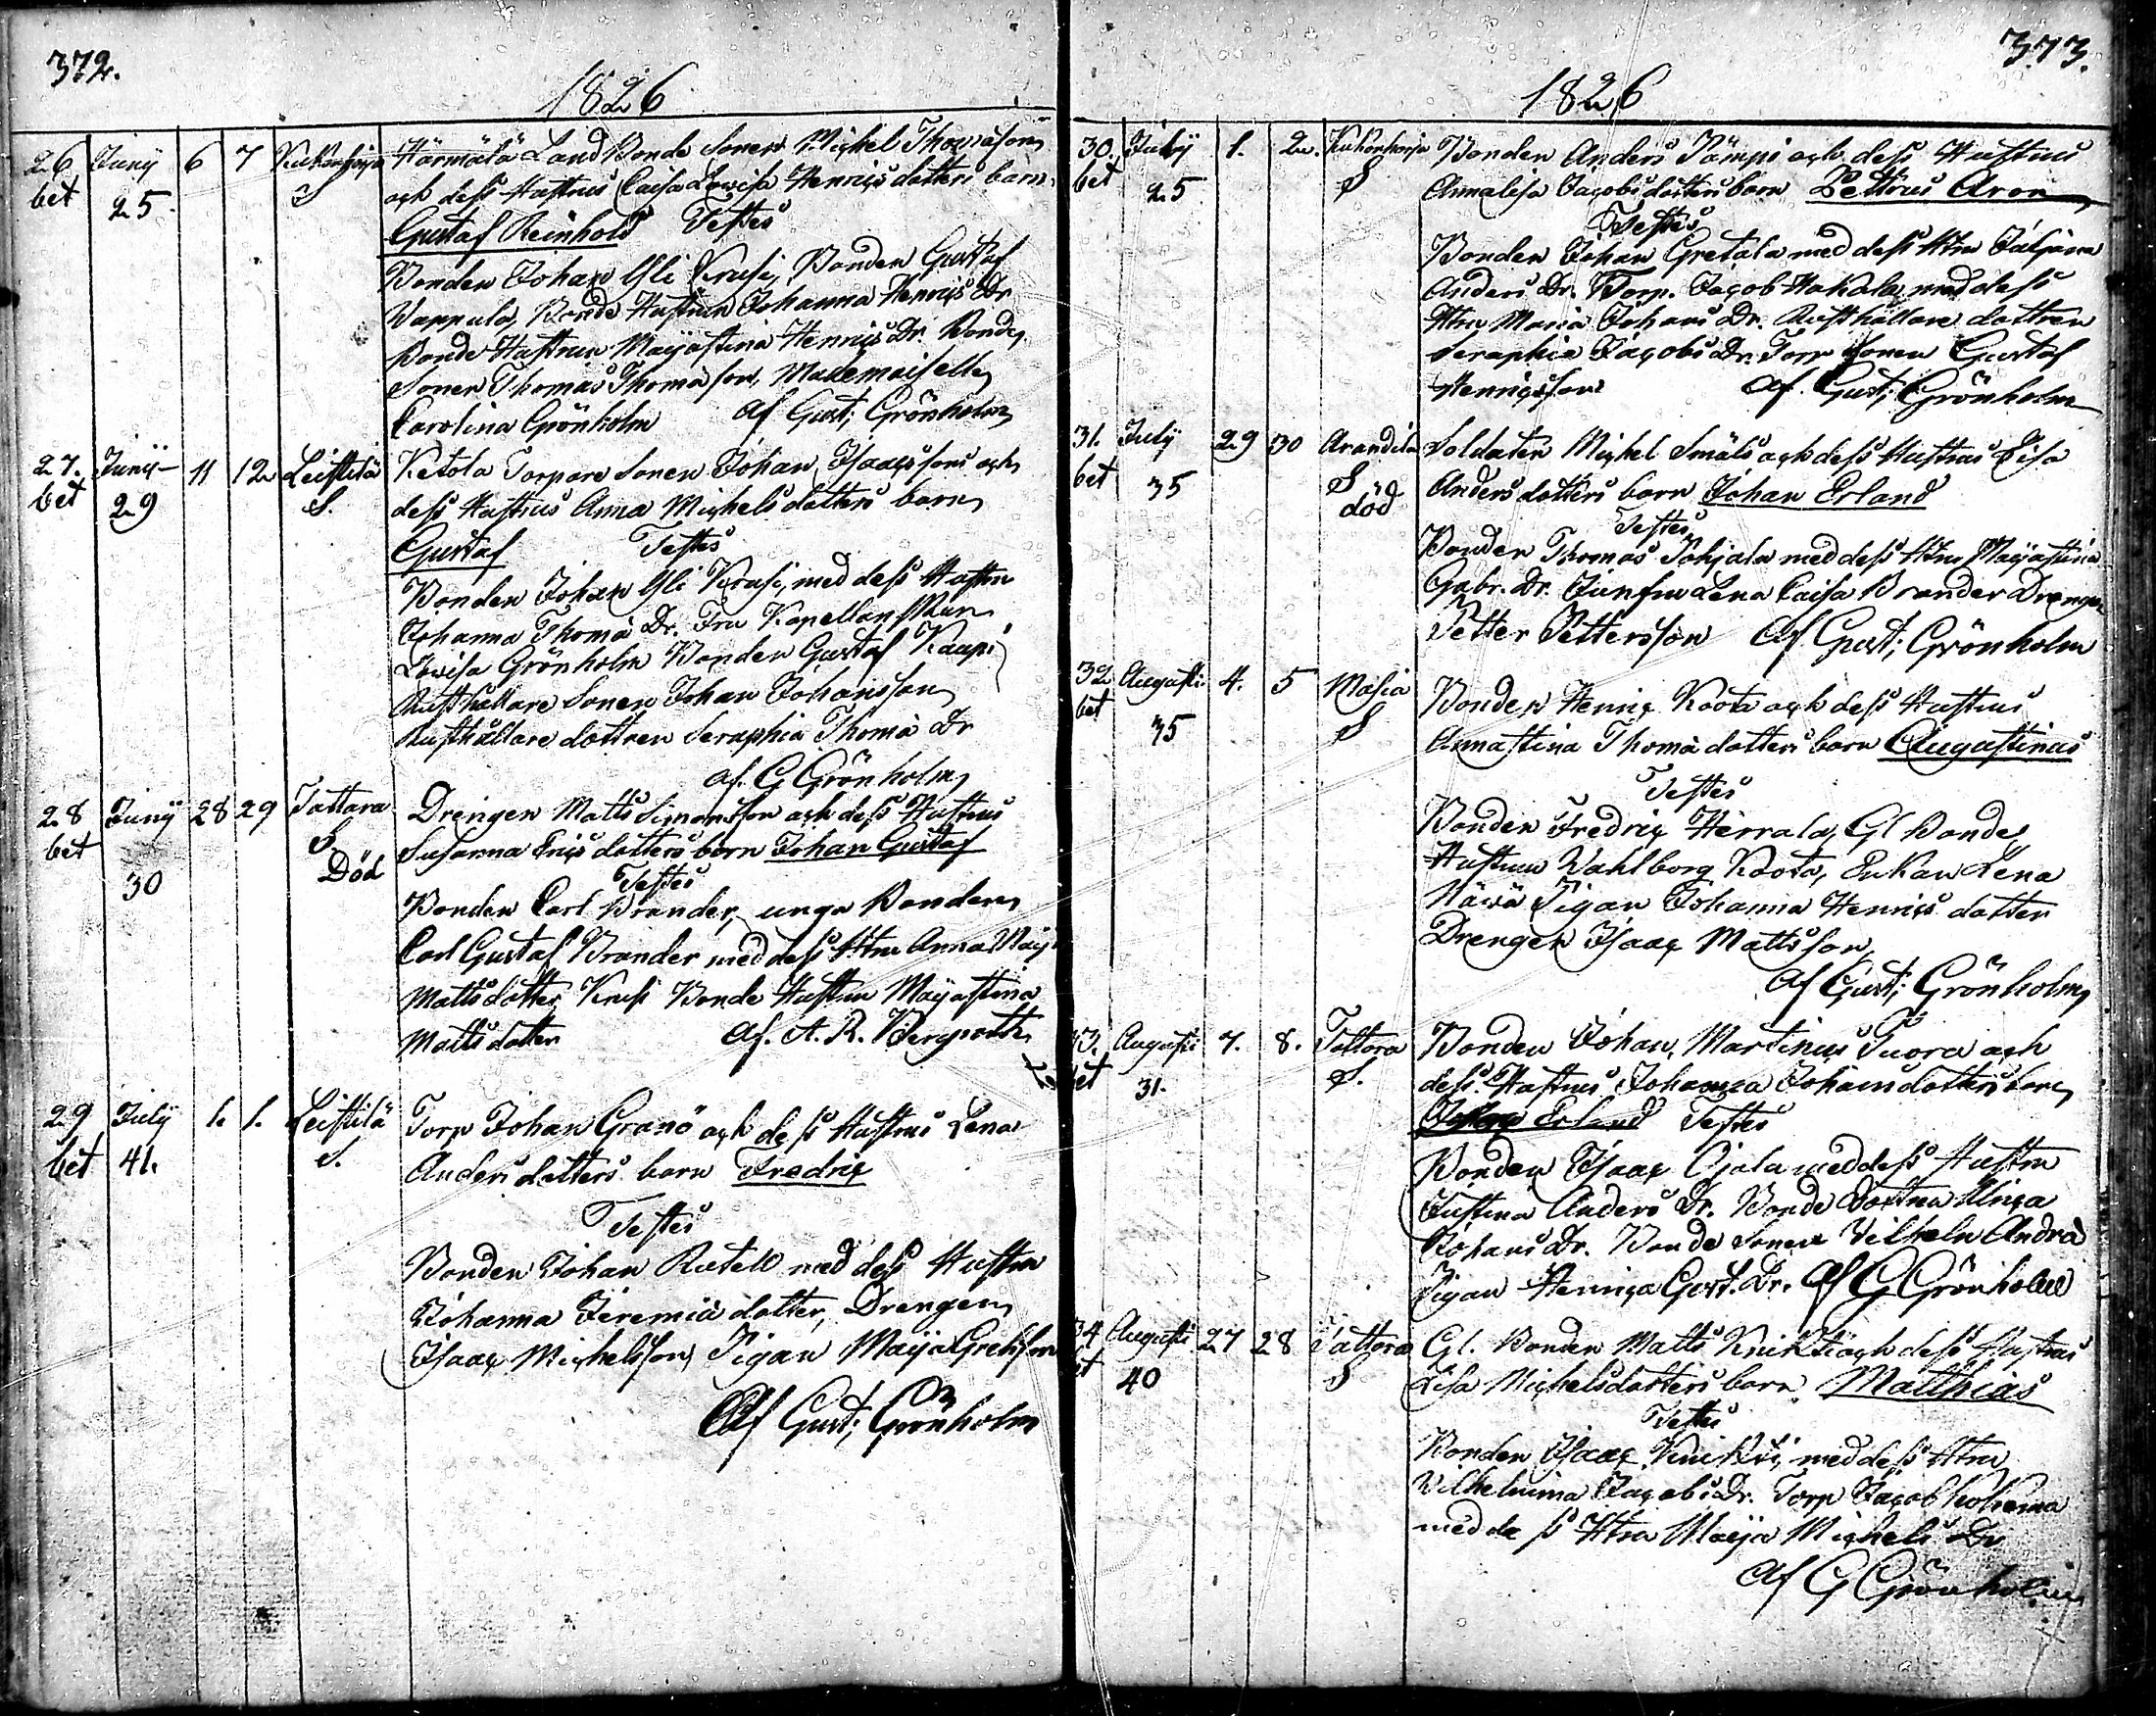 372.
1826
26 Junÿ 6 7 Kukonharja Härmälä Land Bonde Sonens Michel Thomæsons
bet 25 S och dess Hustrus Caisa Lovisa Henrics dotters barn
Gustaf Reinhold Testes
Bonden Johan Yli Krusi, Bonden Gustaf
Wappula, Bonde Hustrun Johanna Henrics Dr
Bonde Hustrun Maijastina Henrics Dr. Bonde
Sonen Thomas Thomæson, Mademoiselle
Carolina Grönholm af Gust; Grönholm
27. Junÿ 11 12 Leistilä Ketola Torpare Sonen Johan Isaacssons och
bet 29 S. dess Hustrus Anna Michelsdotters barn
Gustaf Testes
Bonden Johan Yli Krusi, med dess Hustru
Johanna Thomæ Dr. Fru Kapellanskan
Lovisa Grönholm Bonden Gustaf Kaupi
Rusthållare Sonen Johan Johansson
Rusthållare dottren Seraphia Thomæ Dr
af. G Grönholm
28 Junÿ 28 29 Tattara Drengen Matts Simonsson och dess Hustrus
bet S. Susanna Erics dotters barn Johan Gustaf
30 Död Testes
Bonden Carl Brander, unga Bonden
Carl Gustaf Brander med dess Htru Anna Maij
Mattsdotter, Krusi Bonde Hustrun Maijastina
Mattsdotter af. A. R. Bergroth
29 Julÿ 1. 1. Leistilä Torp Johan Granö och dess Hustrus Lena
bet 41. S. Andersdotters barn Fredric
Testes
Bonden Johan med dess Hustru
Johanna Jeremiæ dotter, Drengen
Isaac Michelsson, Pigan Maija
Af Gust; Grönholm
373.
1826
30. Julÿ 1. 2. Kukonharja Bonden Anders Pämpi och dess Hustrus
bet 25 S Annalisa Jacobsdotters barn Pettrus Aron
Testes
Bonden Johan Gretala med dess Htru
Anders Dr. Torp. Jacob Hakala med dess
Htru Maria Johans Dr. Rusthållare dottren
Seraphia Jacobs Dr. Torp Sonen Gustaf
Henricsson af. Gust; Grönholm
31. Julÿ 29 30 Arandila Soldaten Michel Smäls och dess Hustrus Lisa
bet 35 S Anders dotters barn Johan Erland
död Testes
Bonden Thomas Pohjala med dess Htru Maijastina
Gabr. Dr. Junfru Lena Caisa Brander Drengen
Petter Pettersson Af Gust; Grönholm
32 Augusti 4. 5 Masia Bonden Henric Koota och dess Hustrus
bet 35 S Annastina Thomæ dotters barn Augustinus
Testes
Bonden Fredric Herrala, Gl Bonde
Hustrun Wahlborg Koota, Enkan Lena
Näwä Pigan Johanna Henrics dotter
Drengen Isaac Mattsson,
Af Gust; Grönholm
33. Augusti 7. 8. Tattara Bonden Johan Martinus Tuora och
bet 31. S. dess Hustrus Johanna Johansdotters barn
Johan Erland Testes
Bonden Isaac Ojala med dess Hustru
Justina Anders Dr. Bonde Dottren Ulrica
Johans Dr. Bonde Sonen Vilhelm Andræ
Pigan Henrica Gust. Dr. Af G Grönholm
34 Augusti 27 28 Tattara Gl. Bonden Matts Knickti och dess Hustrus
bet 40 S Lisa Michelsdotters barn Matthias
Testes
Bonden Isaac Knickti, med dess Htru
Vilhelmina Jacobs Dr. Torp Jacob
med dess Htru Maija Michels Dr
Af G Grönholm